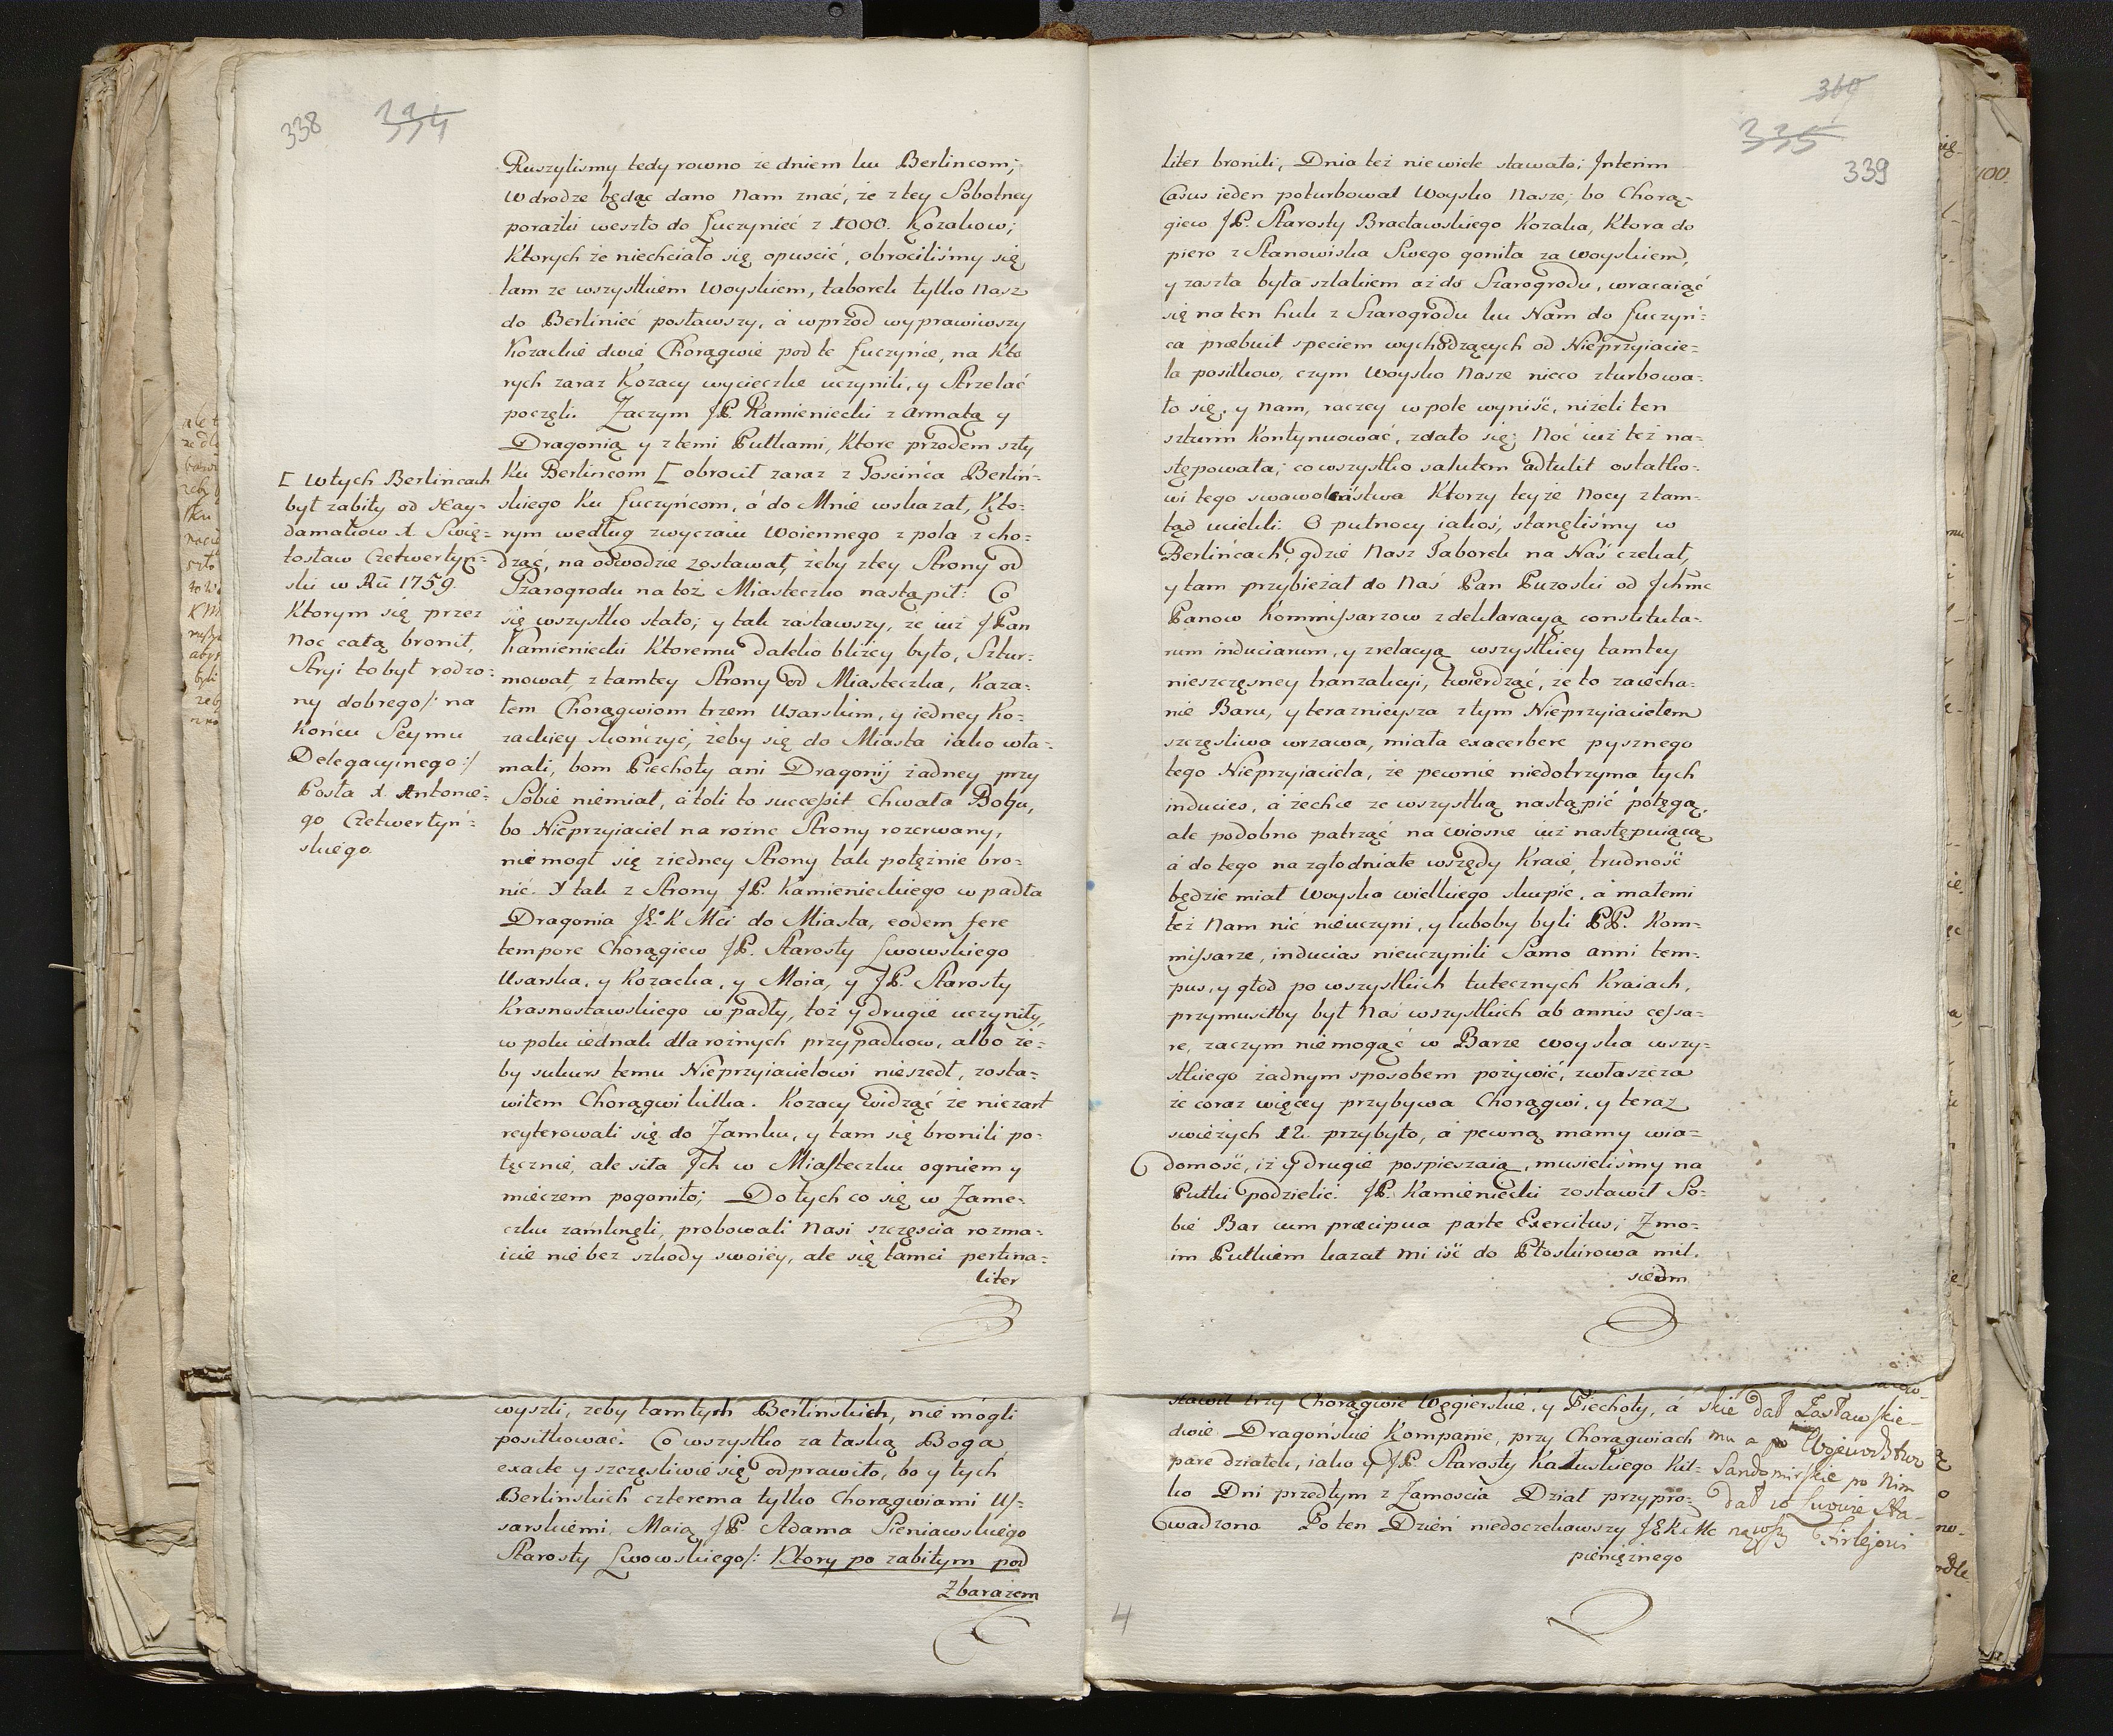 338 334
Ruszylismy tedy rowno ze dniem ku Berlincom;
w drodze będąc dano Nam znać, że z tey Sobotney
porażki weszło do Łuczyniec z 1000. Kozakow;
Ktorych że niechciało się opuscić, obrociliśmy się
tam ze wszystkiem Woyskiem, taborek tylko Nasz
do Berliniec posławszy, á wprzod wyprawiwszy
Kozackie dwie Chorągwie pod te Łuczynce, na Kto
rych zaraz Kozacy wycieczke uczynili, y Strzelać
poczęli. Zaczym JP. Kamieniecki z Armatą y
Dragonią y z temi Pułkami, Ktore przodem szły
Ku Berlincom [ obrocił zaraz z Goscińca Berliń-
skiego Ku Łuczyńcom, á do Mnie wskazał, Kto-
rym według zwyczaiu Woiennego z pola zcho-
dząc, na odwodzie zostawał, żeby z tey Strony od
Szarogrodu na toż Miasteczko nastąpił: Co
się wszystko stało; y tak zastawszy, ze iuż JPan
Kamieniecki Ktoremu daleko bliżey było, Sztur-
mował, z tamtey Strony od Miasteczka, Kaza-
łem Chorągwiom trzem Usarskim, y iedney Ko-
zackiey skończyć, żeby się do Miasta iako wła-
mali, bom Piechoty ani Dragonij żadney przy
Sobie niemiał, átoli to successit chwała Bogu,
bo Nieprzyiaciel na rożne Strony rozerwany,
nie mogł się z iedney Strony tak potężnie bro-
nić. Y tak z Strony JP. Kamienieckiego wpadła
Dragonia JE. K Mci do Miasta, eodem fere
tempore Chorągiew JP. Starosty Lwowskiego
Usarska, y Kozacka, y Moia, y JP. Starosty
Krasnostawskiego wpadły, toż y drugie uczyniły,
w polu iednak dla rożnych przypadkow, albo że-
by sukurs temu Nieprzyiacielowi nieszedł, zosta-
wiłem Chorągwi kilka. Kozacy widząc że nie zart
reyterowali się do Zamku, y tam się bronili po-
tęcznie, ale siła Jch w Miasteczku ogniem y
mieczem pogoniło; Do tych co się w Zame-
czku zamknęli, probowali Nasi szczęscia rozma-
icie nie bez szkody swoiey, ale się tamci pertina-
liter
[ W tych Berlincach
był zabity od Hay-
damakow X. Swię-
tosław Czetwertyn-
ski w Rū 1759.
Ktorym się przez
Noc całą bronił,
Stryi to był rodzo-
ny dobrego /: na
Końcu Seymu
Delegacyinego :/
Posła X. Antonie-
go Czetwertyń-
skiego.
wyszli, żeby tamtych Berlinskich, nie mogli
posiłkować. Co wszystko za łaską Boga,
exacte y szczęsliwie się odprawiło, bo y tych
Berlinskich czterema tylko Chorągwiami Us-
sarskiemi, Moią JP. Adama Sieniawskiego
Starosty Lwowskiego /: Ktory po zabitym pod
Zbarażem
360
335
339
liter bronili, Dnia też niewiele stawało; Jnterim
Casus ieden poturbował Woysko Nasze; bo Chorą-
giew JP. Starosty Bracławskiego Kozaka, Ktora do
piero z Stanowiska Swego goniła za Woyskiem,
y zaszła była szlakiem aż do Szarogrodu, wracaiąc
się na ten huk z Szarogrodu ku Nam do Łuczyń-
ca præbuit speciem wychodzących od Nieprzyiacie-
la posiłkow, czym Woysko Nasze nieco zturbowa-
ło się, y Nam, raczey w pole wyniść, niżeli ten
szturm Kontynuować, zdało się; Noc iuż też na-
stępowała; co wszystko salutem adtulit ostatko-
wi tego swawoleństwa Ktorzy teyże Nocy z tam-
tąd uciekli. O pułnocy iakoś, stanęliśmy w
Berlińcach, gdzie Nasz Taborek na Naś czekał,
y tam przybieżał do Naś Pan Puzoski od Jchmc
Panow Kommissarzow z deklaracyą constituta-
rum induciarum, y z relacyą wszystkiey tamtey
nieszczęsney tranzakcyi, twierdząc, że to zaiecha-
nie Baru, y teraznieysza z tym Nieprzyiacielem
szczęsliwa wrzawa, miała exacerbere pysznego
tego Nieprzyiaciela, że pewnie niedotrzyma tych
inducies, á zechce ze wszystką nastąpić potęgą,
ale podobno patrząc na wiosne iuż następuiącą
á do tego na zgłodniałe wszędy Kraie, trudność
będzie miał Woyska wielkiego skupic, á małemi
też Nam nic nieuczyni, y luboby byli PP. Kom-
missarze, inducias nieuczynili Samo anni tem-
pus, y głod po wszystkich tutecznych Kraiach,
przymusiłby był Naś wszystkich ab annis cessa-
re, zaczym niemogąc w Barze Woyska wszy-
stkiego żadnym sposobem pożywić, zwłaszcza
że coraz więcey przybywa Chorągwi, y teraz
swieżych 12. przybyło, á pewną mamy wia-
domość, iż y drugie pospieszaią, musieliśmy na
Pułki podzielic. JP. Kamieniecki zostawił So-
bie Bar cum præcipua parte Exercitus; Z mo-
im Pułkiem kazał mi iść do Płoskirowa mil.
siedm
stawił trzy Chorągwie Węgierskie, y Piechoty, á
dwie Dragońskie Kompanie, przy Chorągwiach
pare działek, iako y JP. Starosty Kałuskiego Kil-
ko Dni przedtym z Zamoscia Dział przypro-
wadzono Po ten Dzień niedoczekawszy JEKMc
pieniężnego
skie dał Zasławskie-
mu a po Wojewodztwo
Sandomirskie po Nim
dał
Firlejowi
4